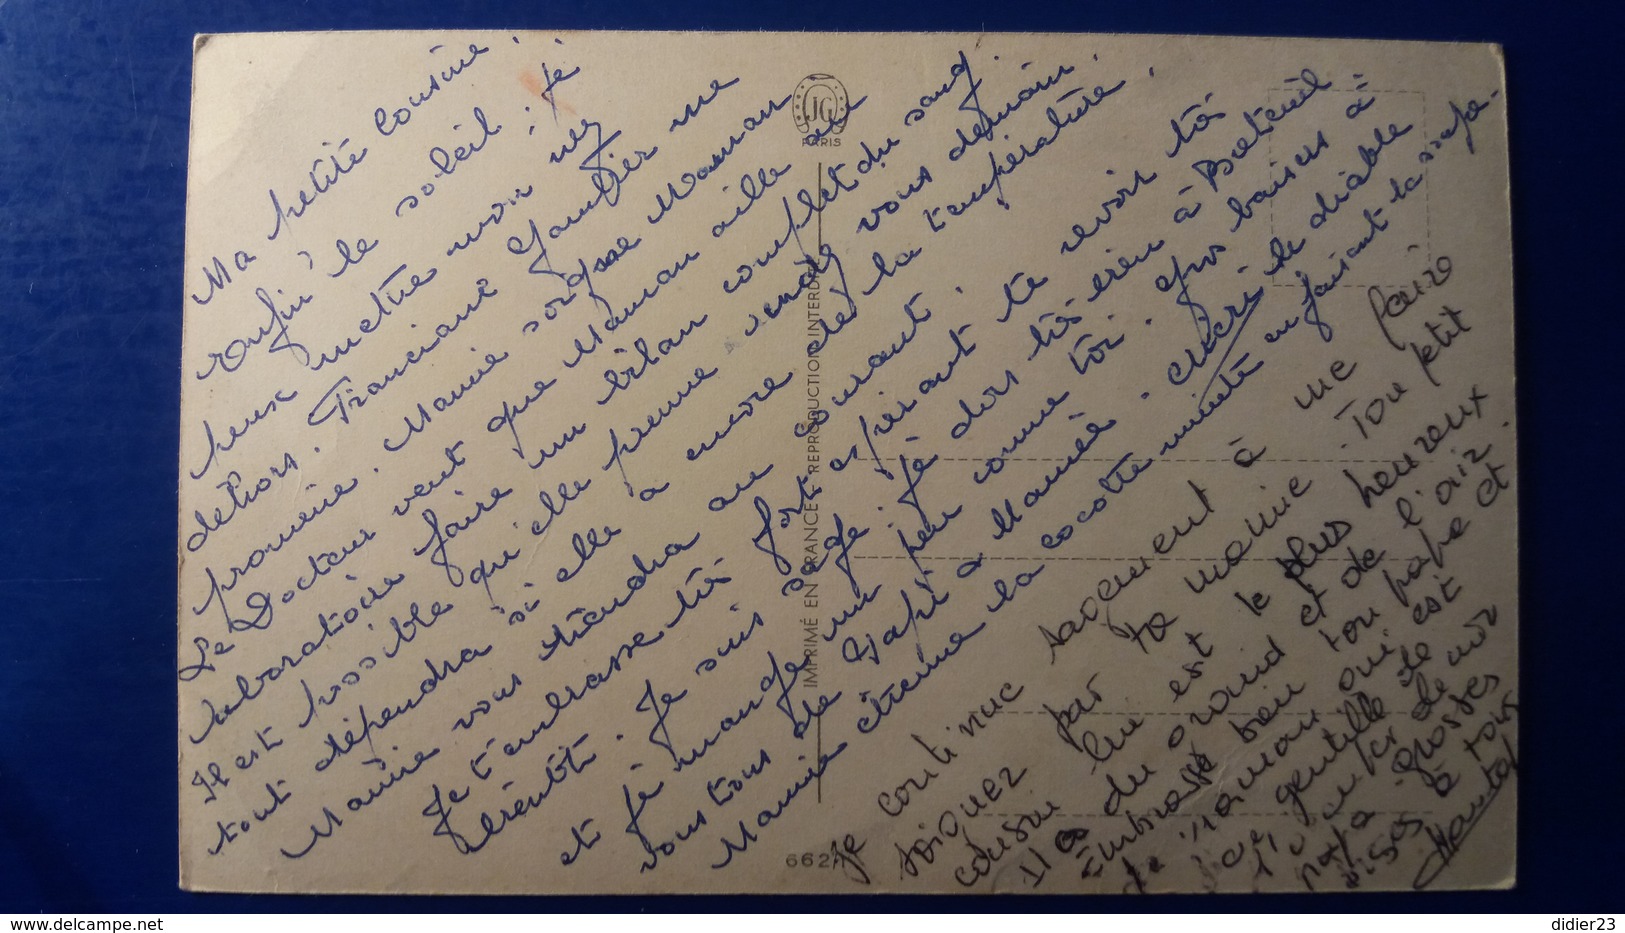 Ma petite Cousine,
enfin le soleil ; je
peux mettre mon nez
dehors. Franciane Gauthier me
promène. Mamie soigne Maman
Le Docteur veut que Maman aille au
laboratoire faire un bilan complet du sang.
Il est possible qu'elle prenne vous demain.
tout dépendra si elle a encore de la température.
Mamie vous tiendra au courant.
Je t'embrasse très fort espérant te revoir très
bientôt. Je suis sage. Je dors très bien à
et je mange un peu comme toi. gros baisers à
vous tous de Papi à Mamie.
Mamie étrenne la cocotte minute en faisant la soupe.
Je continue sagement à me faire
soigner par ta mamie. Ton petit
cousin lui est le plus heureux
Il a du grand et de l'air.
Embrasse bien ton papa et
ta maman qui est
gentille de
grosses
bises à tous
Chantal
JG
PARIS
IMPRIMÉ EN FRANCE - REPRODUCTION INTERDITE
662
didier23